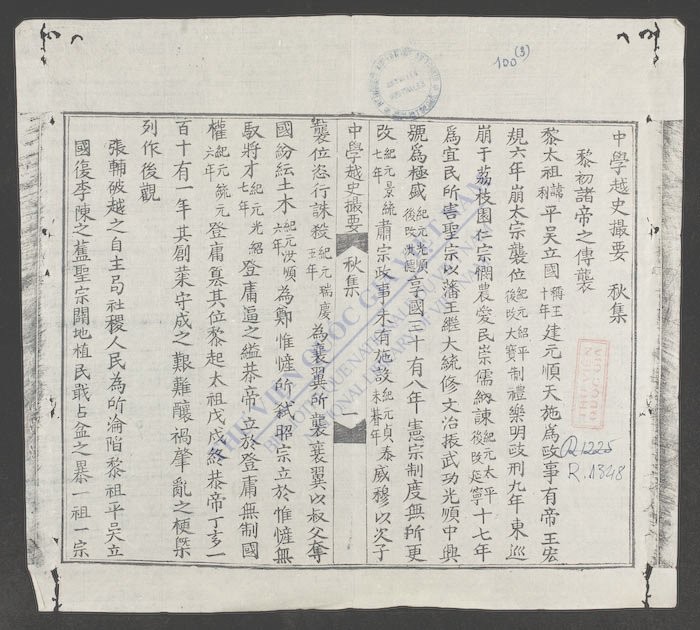 中學越史撮要 秋集
黎初諸帝之傳襲
黎太祖諱利平吳立國稱王十年建元順天施爲政事有帝王宏
規六年崩太宗襲位紀元紹平後改大寶制禮樂明政刑九年東巡
崩于荔枝園仁宗憫農愛民崇儒納諫紀元太平後改延寧十七年
爲宜民所害聖宗以藩王繼大統修文治振武功光順中興
號爲極盛紀元光順後改洪德享國三十有八年憲宗制度無所更
改紀元景統七年肅宗政事未有施設紀元貞泰未朞年威穆以次子
中學越史撮要 秋集 一
襲位恣行誅殺紀元瑞慶五年爲襄翼所襲襄翼以叔父奪
國紛紜土木紀元洪順六年爲鄭惟㦃所弑昭宗立於惟㦃無
馭將才紀元光紹七年登庸逼之繼恭帝立於登庸無制國
權紀元統元六年登庸篡其位黎起太祖戊戌終恭帝丁亥一
百十有一年其創業守成之艱難釀禍肇亂之梗槩
列作後觀
張輔破越之自主局社稷人民爲所淪陷黎祖平吳立
國復李陳之舊聖宗闢地植民戢占盆之暴一祖一宗
100(3)
THƯ VIỆN QUỐC GIA VIỆT NAM
BIBLIOTHEQUE NATIONALE DU VIETNAM
NATIONAL LIBRARY OF VIETNAM
R1225
R.1848